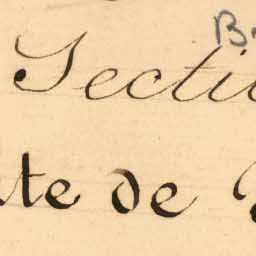 B.
Secti
te de